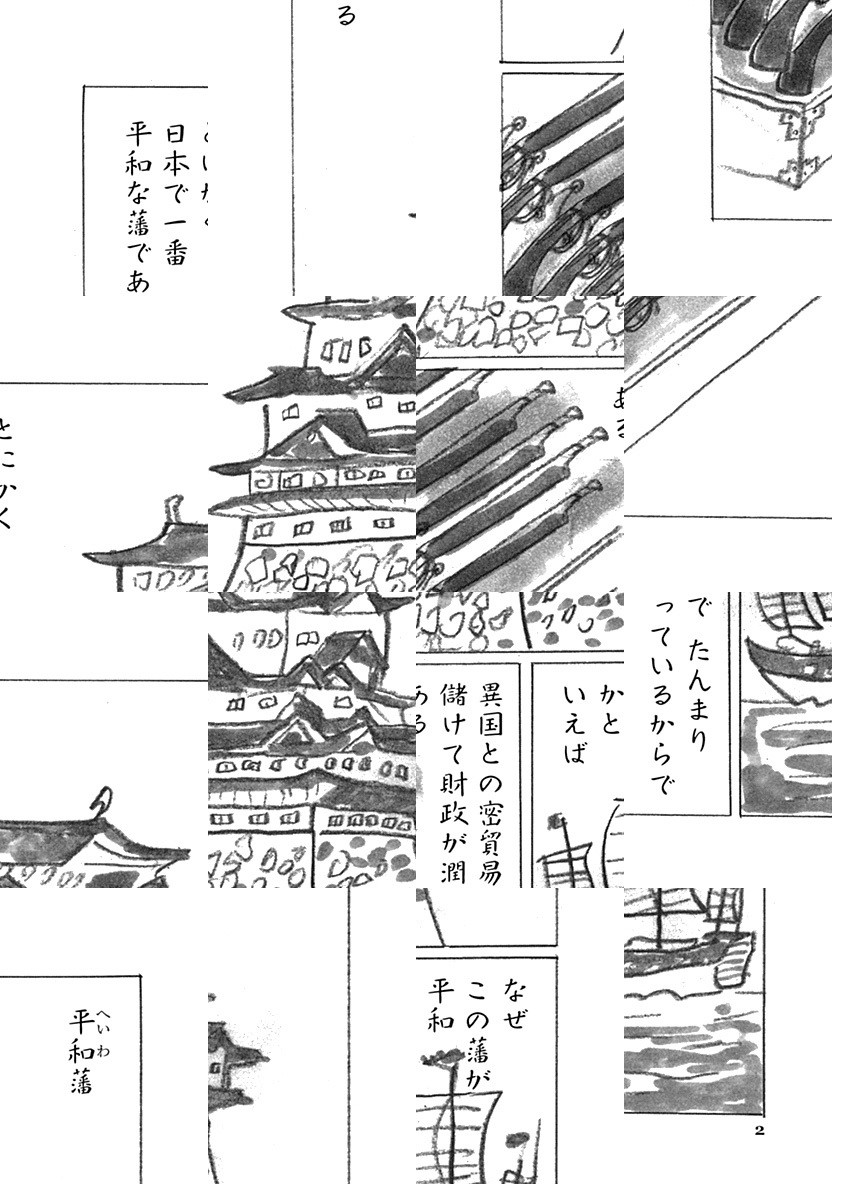 平和藩
へいわ
とにかく
日本で一番
平和な藩である
なぜ
この藩が
平和
かと
いえば
異国との密貿易で たんまり
儲けて財政が潤っているからで
ある
2